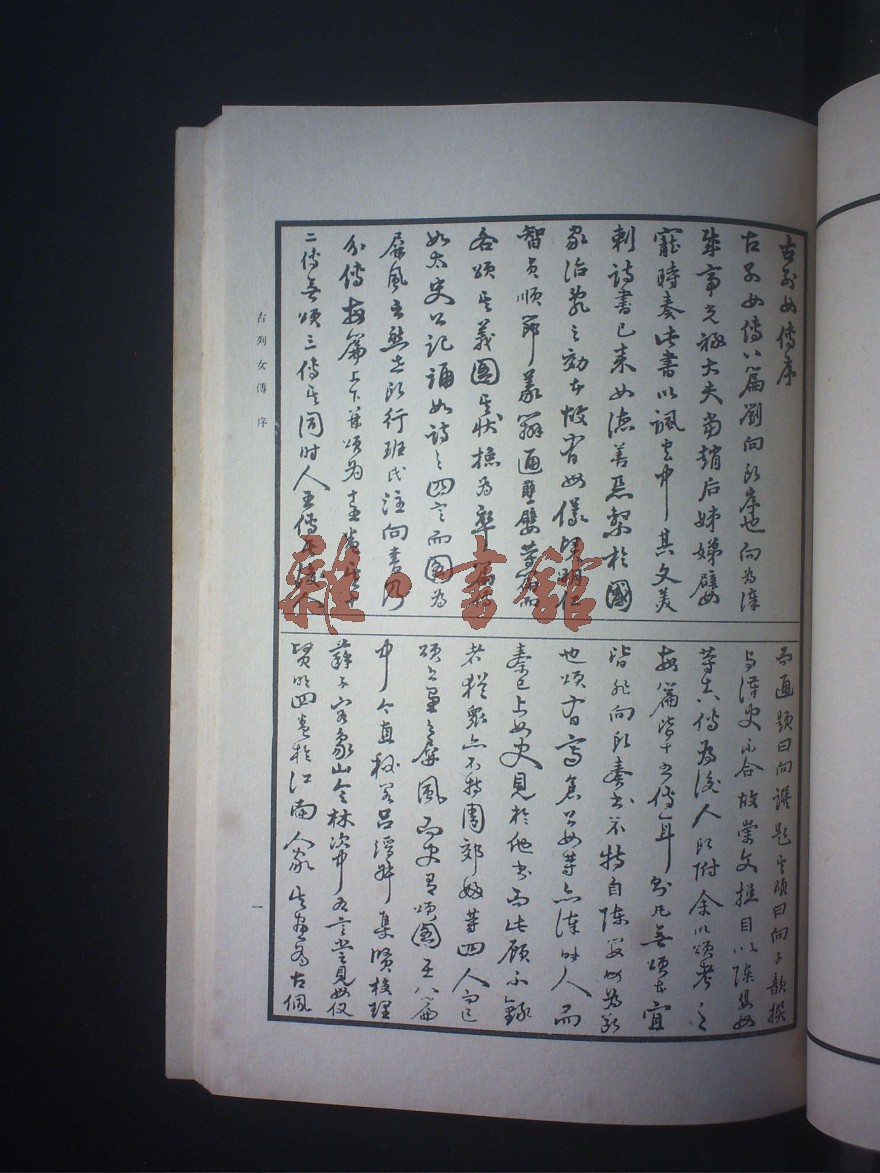 古列女傳序
古列女傳八篇劉向所序也向為漢
成帝光祿大夫當趙后姊娣嬖
寵時奏此書以諷宮中其文美
刺詩書已來女德善惡繫於國
家治亂之效者故有母儀賢明仁
智貞順節義辯通孽嬖等篇而
各頌其義圖其狀總為卒篇傳
如太史公記頌如詩之四言而圖為
屏風云然世所行班氏注向書乃
分傳每篇上下并頌為十五卷其十
二傳無頌三傳其同時人五傳其後人
而通題曰向譔題其頌曰向子歆撰
與漢史不合故崇文總目以陳嬰母
等十六傳為後人所附余以頌考之
每篇皆十五傳耳則凡無頌者宜
皆非向所奏書不特自陳嬰母為斷
也頌有齊倉公女等亦漢時人而
秦已上女史見於他書而此顧不錄
者猶眾亦不特周郊婦等四人而已
頌云畫之屏風而史有頌圖在八篇
中今直秘閣呂縉叔集賢校理
蘇子容象山令林次中各言嘗見母儀
賢明四卷於江南人家其畫為古佩
古列女傳 序
一
雜·書館